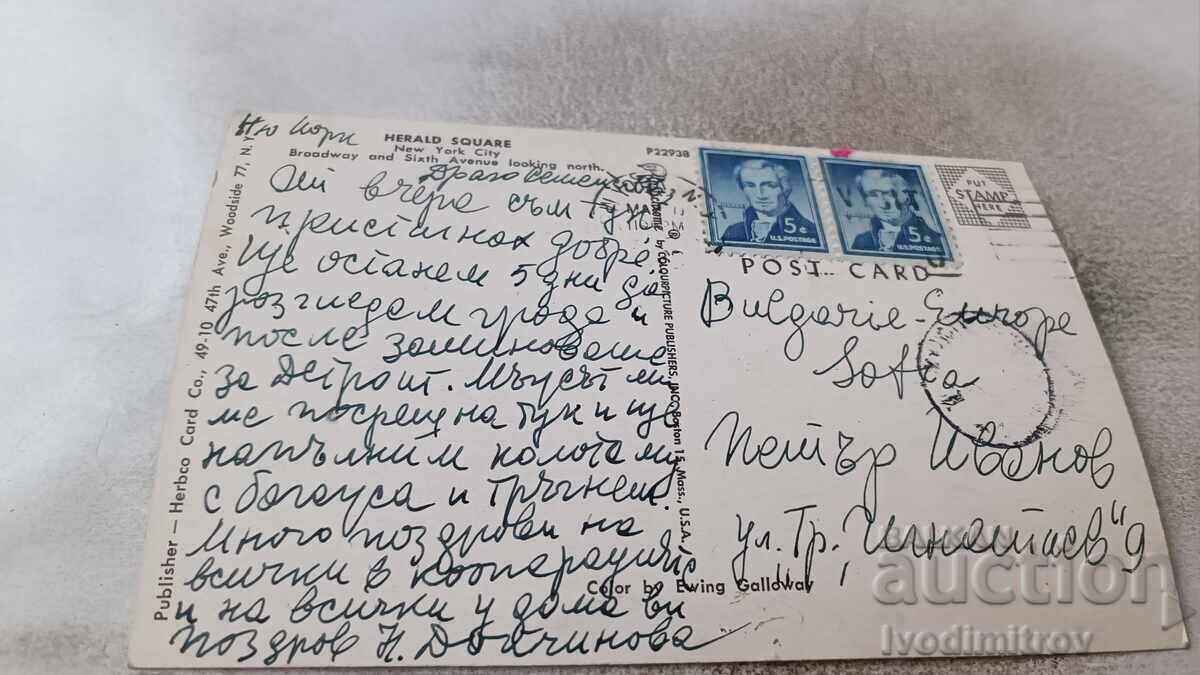 Ню Йорк
HERALD SQUARE
New York City
Broadway and Sixth Avenue looking north.
P22938
Драго семейство
От вчера съм тук
пристигнах добре
Ще останем 5 дни да
розгледам града и
после заминаваме
за Детроит. Мъжът ми
ме посрещна тук и ще
напълним колата му
с багажа и тръгнем.
Много поздрави на
всички в кооперацията
и на всички у дома ви
поздрав Н. Дойчинова
Publisher — Herbco Card Co., 49-10 47th Ave., Woodside 77, N.Y.
by COLOURPICTURE PUBLISHERS, INC., Boston 15, Mass., U.S.A.
Color by Ewing Galloway
5¢
U.S. POSTAGE
5¢
U.S. POSTAGE
PUT
STAMP
HERE
POST CARD
Bulgarie-Europe
Sofia
Петър Иванов
ул. "Гр. Игнатиев" 9
BALKAN
auction
Ivodimitrov